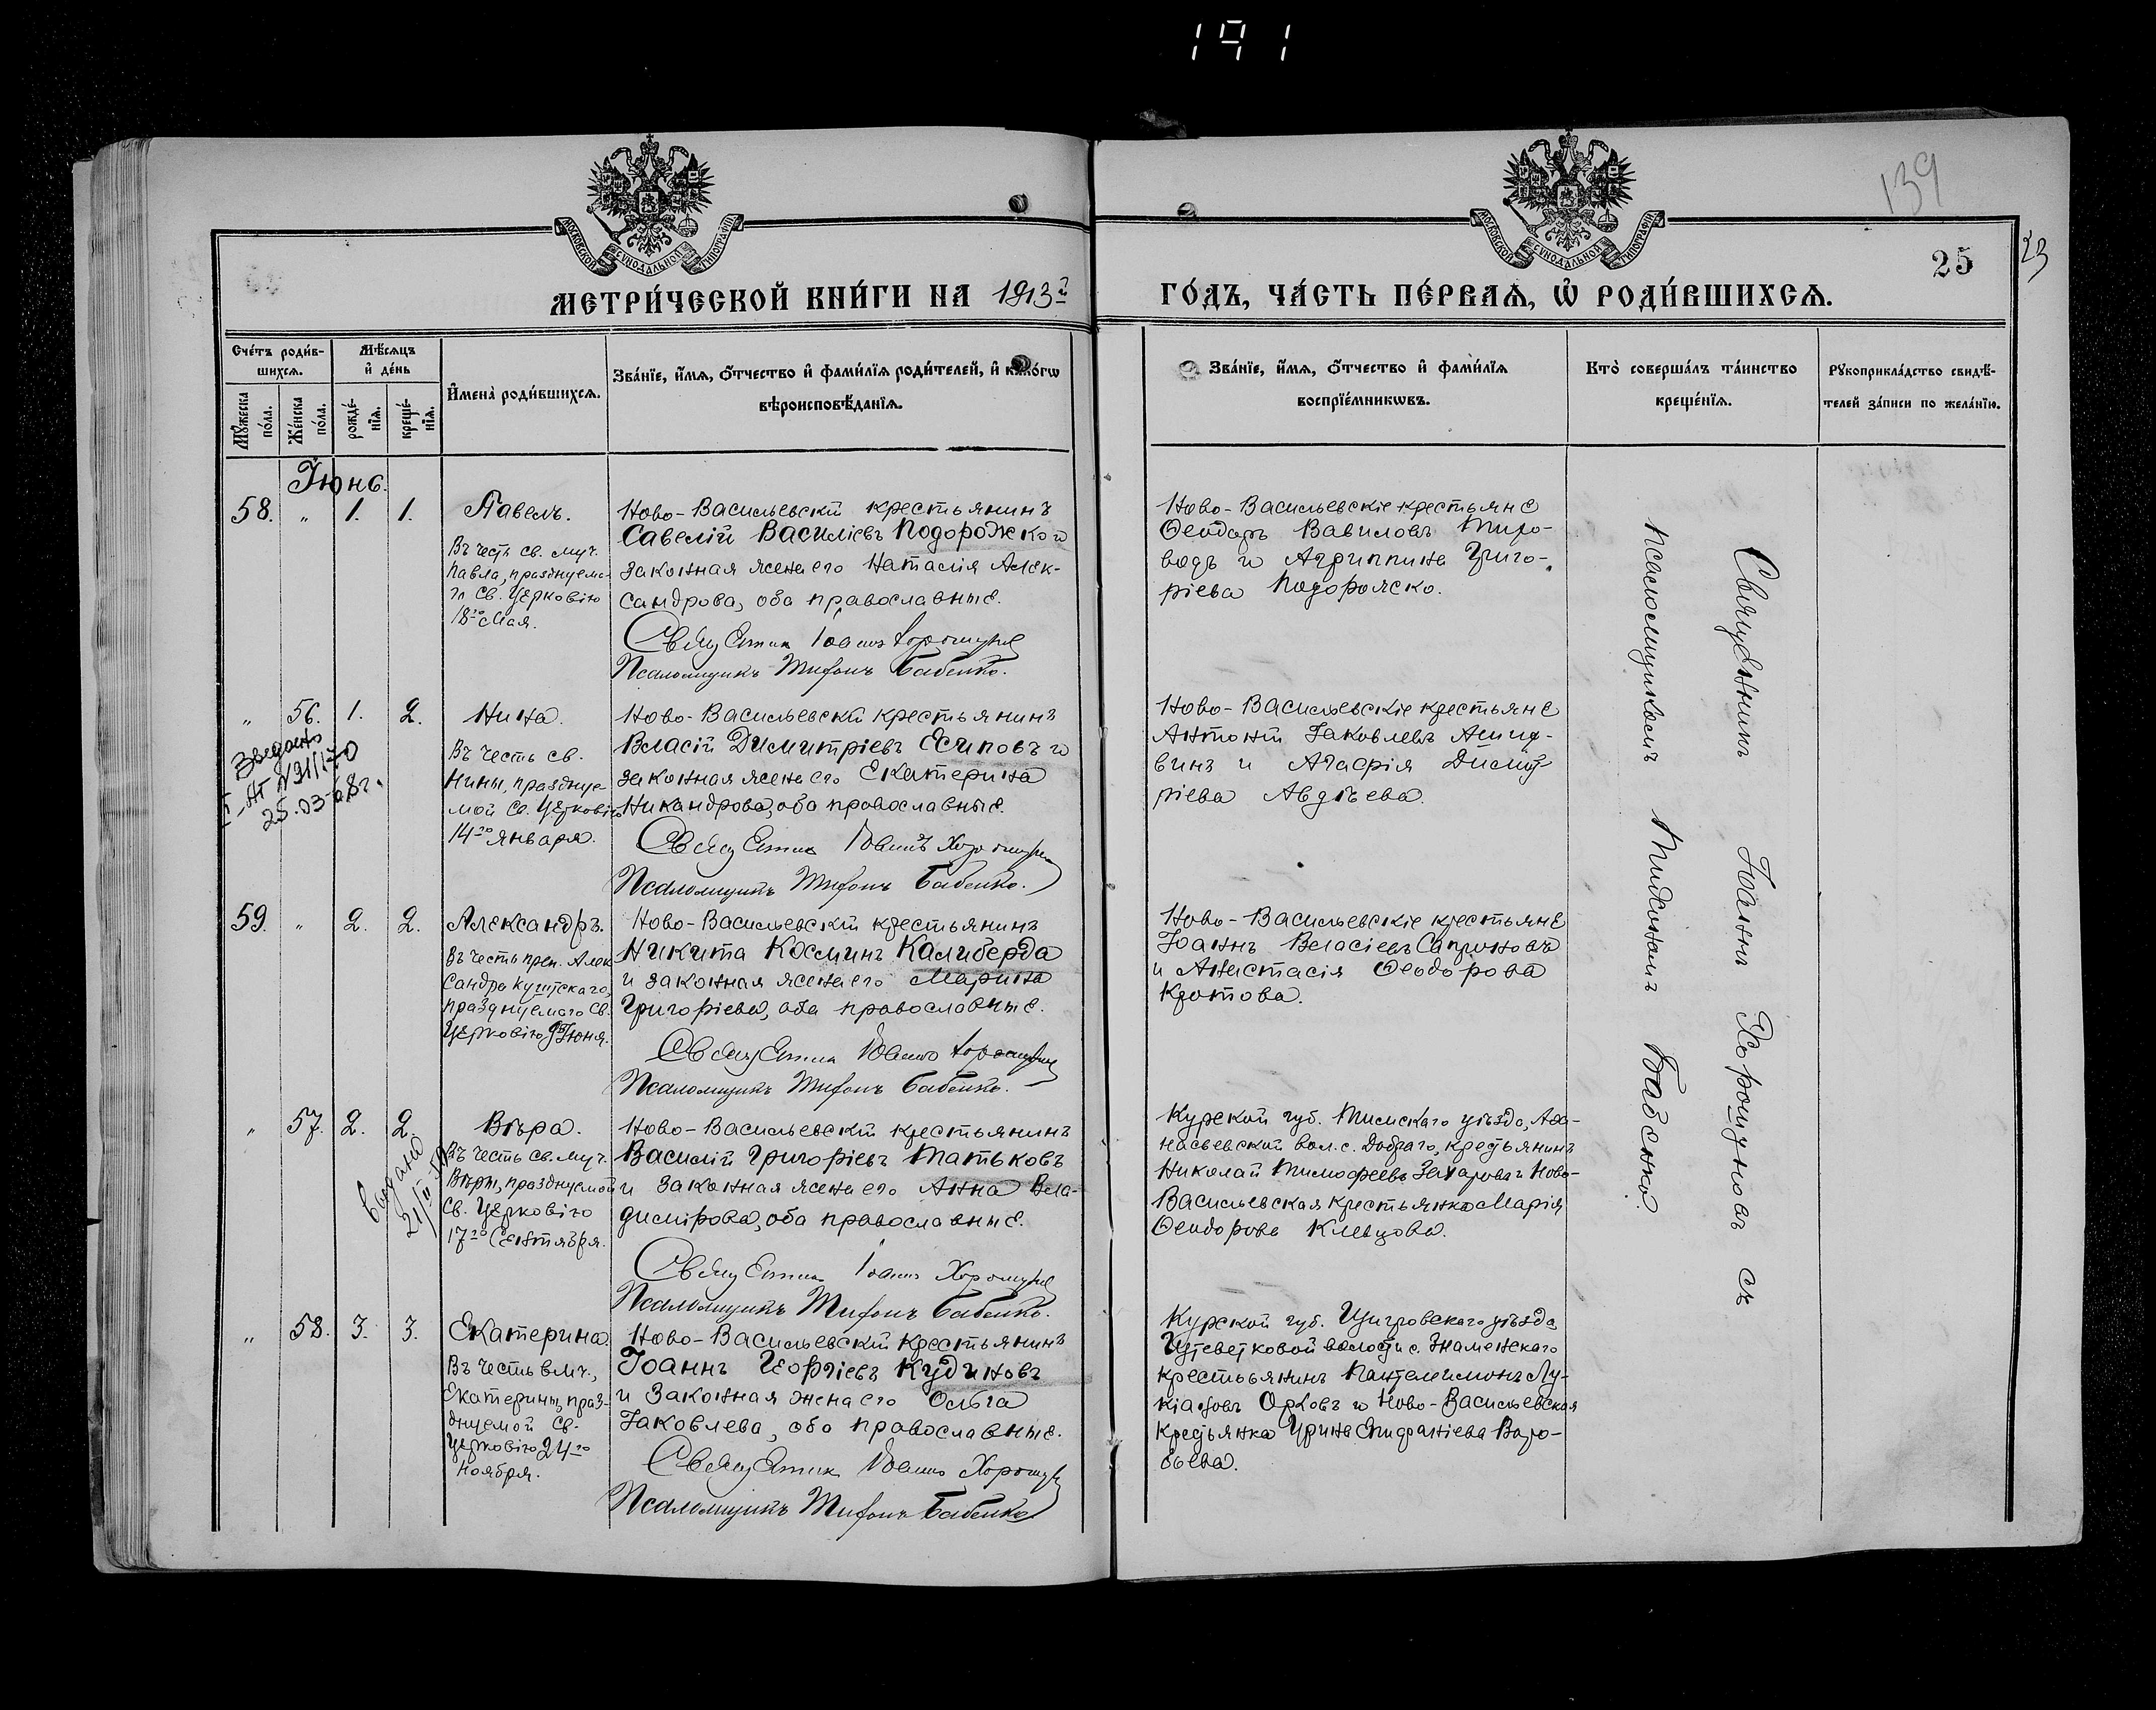 191
139
25
23
МОСКОВСКОЙ СѴНОДАЛЬНОЙ ТИПОГРАФІИ
МОСКОВСКОЙ СѴНОДАЛЬНОЙ ТИПОГРАФІИ
МЕТРИ́ЧЕСКОЙ КНИ́ГИ НА 1913 г
ГО́ДЪ, ЧА́СТЬ ПЕ́РВАѦ, Ѡ҆ РОДИ́ВШИХСѦ.
Сче́тъ роди́в-
шихсѧ.
Мѣ́сѧцъ
и҆ де́нь
Мꙋ́жеска по́ла.
Же́нска по́ла.
рожде́-нїѧ.
креще́-нїѧ.
И҆мена̀ роди́вшихсѧ.
Зва́нїе, и҆́мѧ, ѻ҆́тчество и҆ фами́лїѧ роди́телей, и҆ како́гѡ
вѣроисповѣ́данїѧ.
Зва́нїе, и҆́мѧ, ѻ҆́тчество и҆ фами́лїѧ
воспрїе́мникѡвъ.
Кто̀ соверша́лъ та́инство
креще́нїѧ.
Рꙋкоприкла́дство свидѣ́-
телей за́писи по жела́нїю.
Іюнь.
58. " 1. 1. Павелъ.
Въ честь св. муч.
Павла, празднуема-
го Св. Церковію
18го Мая.
Ново-Васильевскій крестьянинъ
Савелій Василіевъ Подорожко и
законная жена его Наталія Алек-
сандрова, оба православные.
Священник Іоаннъ Хорошунов
Псаломщикъ Тихонъ Бабенко.
Ново-Васильевскіе крестьяне
Ѳеодоръ Вавиловъ
и Агриппина Григо-
ріева Подорожко.
" 56. 1. 2. Нина.
Въ честь св.
Нины, празднуе-
мой Св. Церковію
14го января.
25.03
Ново-Васильевскій крестьянинъ
Власій Димитріевъ Есиповъ и
законная жена его Екатерина
Никандрова, оба православные.
Священник Іоаннъ Хорошунов
Псаломщикъ Тихонъ Бабенко.
Ново-Васильевскіе крестьяне
Антоній Іаковлевъ
и Агафія Димит-
ріева Авдѣева.
59. " 2. 2. Александръ.
Въ честь преп. Алек
сандра Куштскаго,
празднуемаго Св.
Церковію 9го Іюня.
Ново-Васильевскій крестьянинъ
Никита Косминъ Калиберда
и законная жена его Марина
Григоріева, оба православные.
Священник Іоаннъ Хорошунов
Псаломщикъ Тихонъ Бабенко.
Ново-Васильевскіе крестьяне
Іоаннъ Власіевъ Сапроновъ
и Анастасія Ѳеодорова
Кротова.
" 57. 2. 2. Вѣра.
Въ честь св. муч.
Вѣры, празднуемой
Св. Церковію
17го Сентября.
Выдано
Ново-Васильевскій крестьянинъ
Василій Григоріевъ Татьковъ
и законная жена его Анна Вла-
димірова, оба православные.
Священник Іоаннъ Хорошунов
Псаломщикъ Тихонъ Бабенко.
Курской губ. Тимскаго уѣзда, Аѳа-
насьевской вол. с. Добраго, крестьянинъ
Николай Тимоѳеевъ Захаровъ и Ново-
Васильевская крестьянка Марія
Ѳеодорова Клевцова.
" 58. 3. 3. Екатерина.
Въ честь влмч.,
Екатерины, праз-
днуемой Св.
Церковію 24го
Ноября.
Ново-Васильевскій крестьянинъ
Іоаннъ Георгіевъ Кудиновъ
и законная жена его Ольга
Іаковлева, оба православные.
Священник Іоаннъ Хорошунов
Псаломщикъ Тихонъ Бабенко
Курской губ. Щигровскаго уѣзда
волости с. Знаменскаго
крестьянинъ Пантелимонъ Лу-
кіановъ Орловъ и Ново-Васильевская
крестьянка Ирина Епифаніева Воро-
бьева.
Священникъ Іоаннъ Хорошуновъ съ
псаломщикомъ Тихономъ Бабенко.